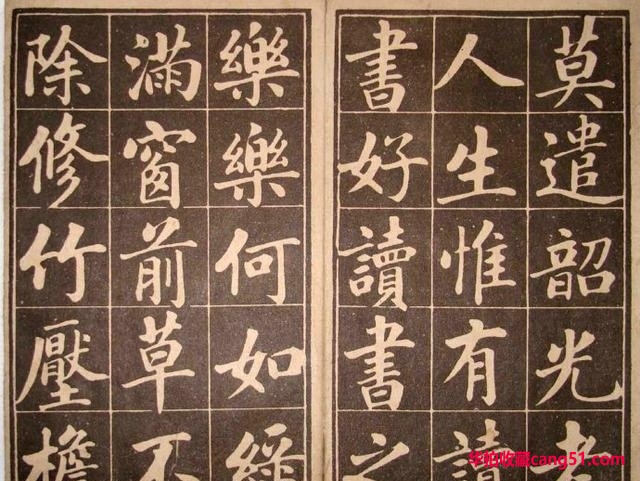 莫遣韶光老
人生惟有讀
書好讀書之
樂樂何如綠
滿窗前草不
除修竹壓檐
华帕收藏cang51.com